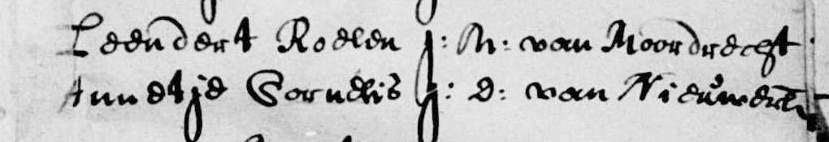 Leendert Roelen j: M: van Moordrecht
Annetje Cornelis j: d: van Nieuwerk